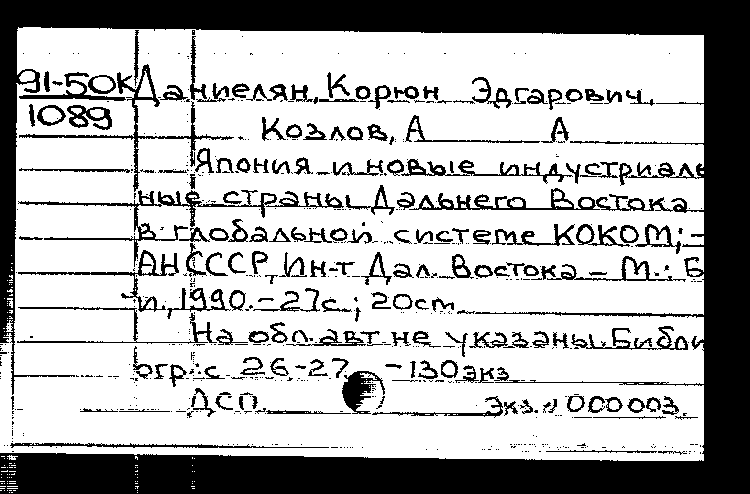 91-50К Даниелян, Корюн Эдгарович.
1089
Козлов, А А
Япония и новые индустриаль
ные страны Дальнего Востока
в глобальной системе КОКОМ; -
АН СССР, Ин-т Дал. Востока - М.: Б
и, 1990. - 27с.; 20cm
На обл. авт не указаны. Библи
огр.: с 26-27 - 130 экз
ДСП. Экз. № 000003.